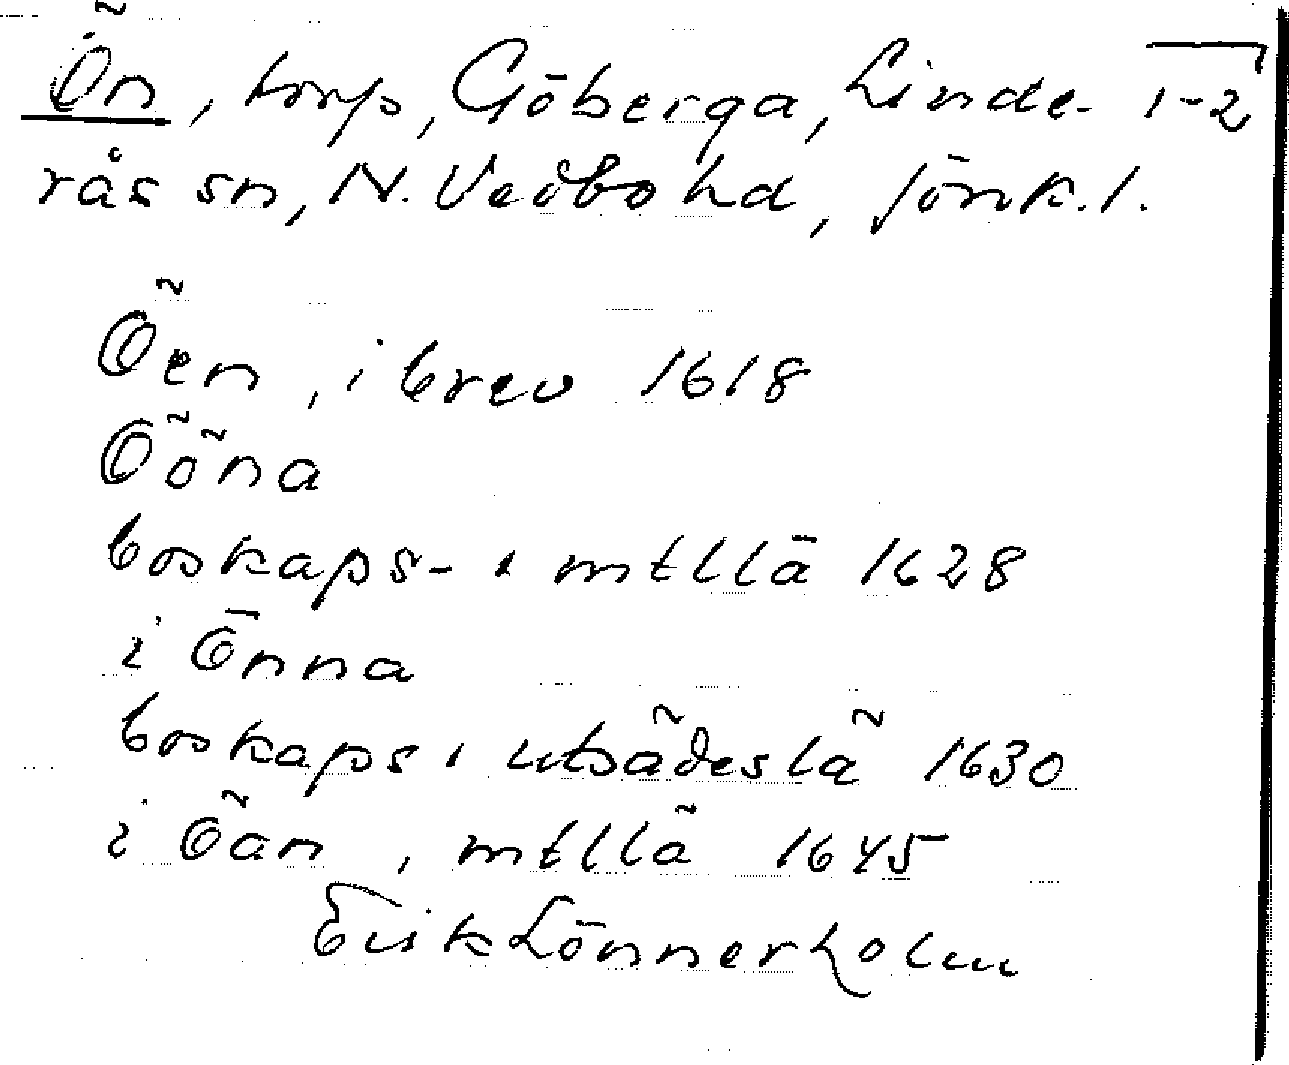 Ön, torp, Göberga, Linde- 1-2
rås sn, N. Vedbo hd, Jönk. l.
Öen, i brev 1618
Ööna
boskaps- i mtllä 1628
i Önna
boskaps i utsädeslä 1630
i Öan, mtllä 1645
Erik Lönnerholm